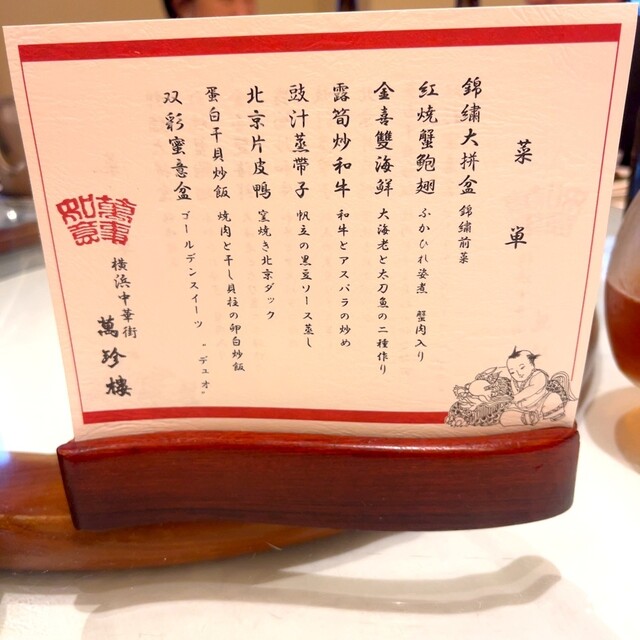 菜単
錦繡大拼盆 錦繡前菜
紅焼蟹鮑翅 ふかひれ姿煮 蟹肉入り
金喜雙海鮮 大海老と太刀魚の二種作り
露筍炒和牛 和牛とアスパラの炒め
豉汁蒸帶子 帆立の黒豆ソース蒸し
北京片皮鴨 窯焼き北京ダック
蛋白干貝炒飯 焼肉と干し貝柱の卵白炒飯
双彩蜜意盆 ゴールデンスイーツ “デュオ”
萬事如意
横浜中華街
萬珍樓